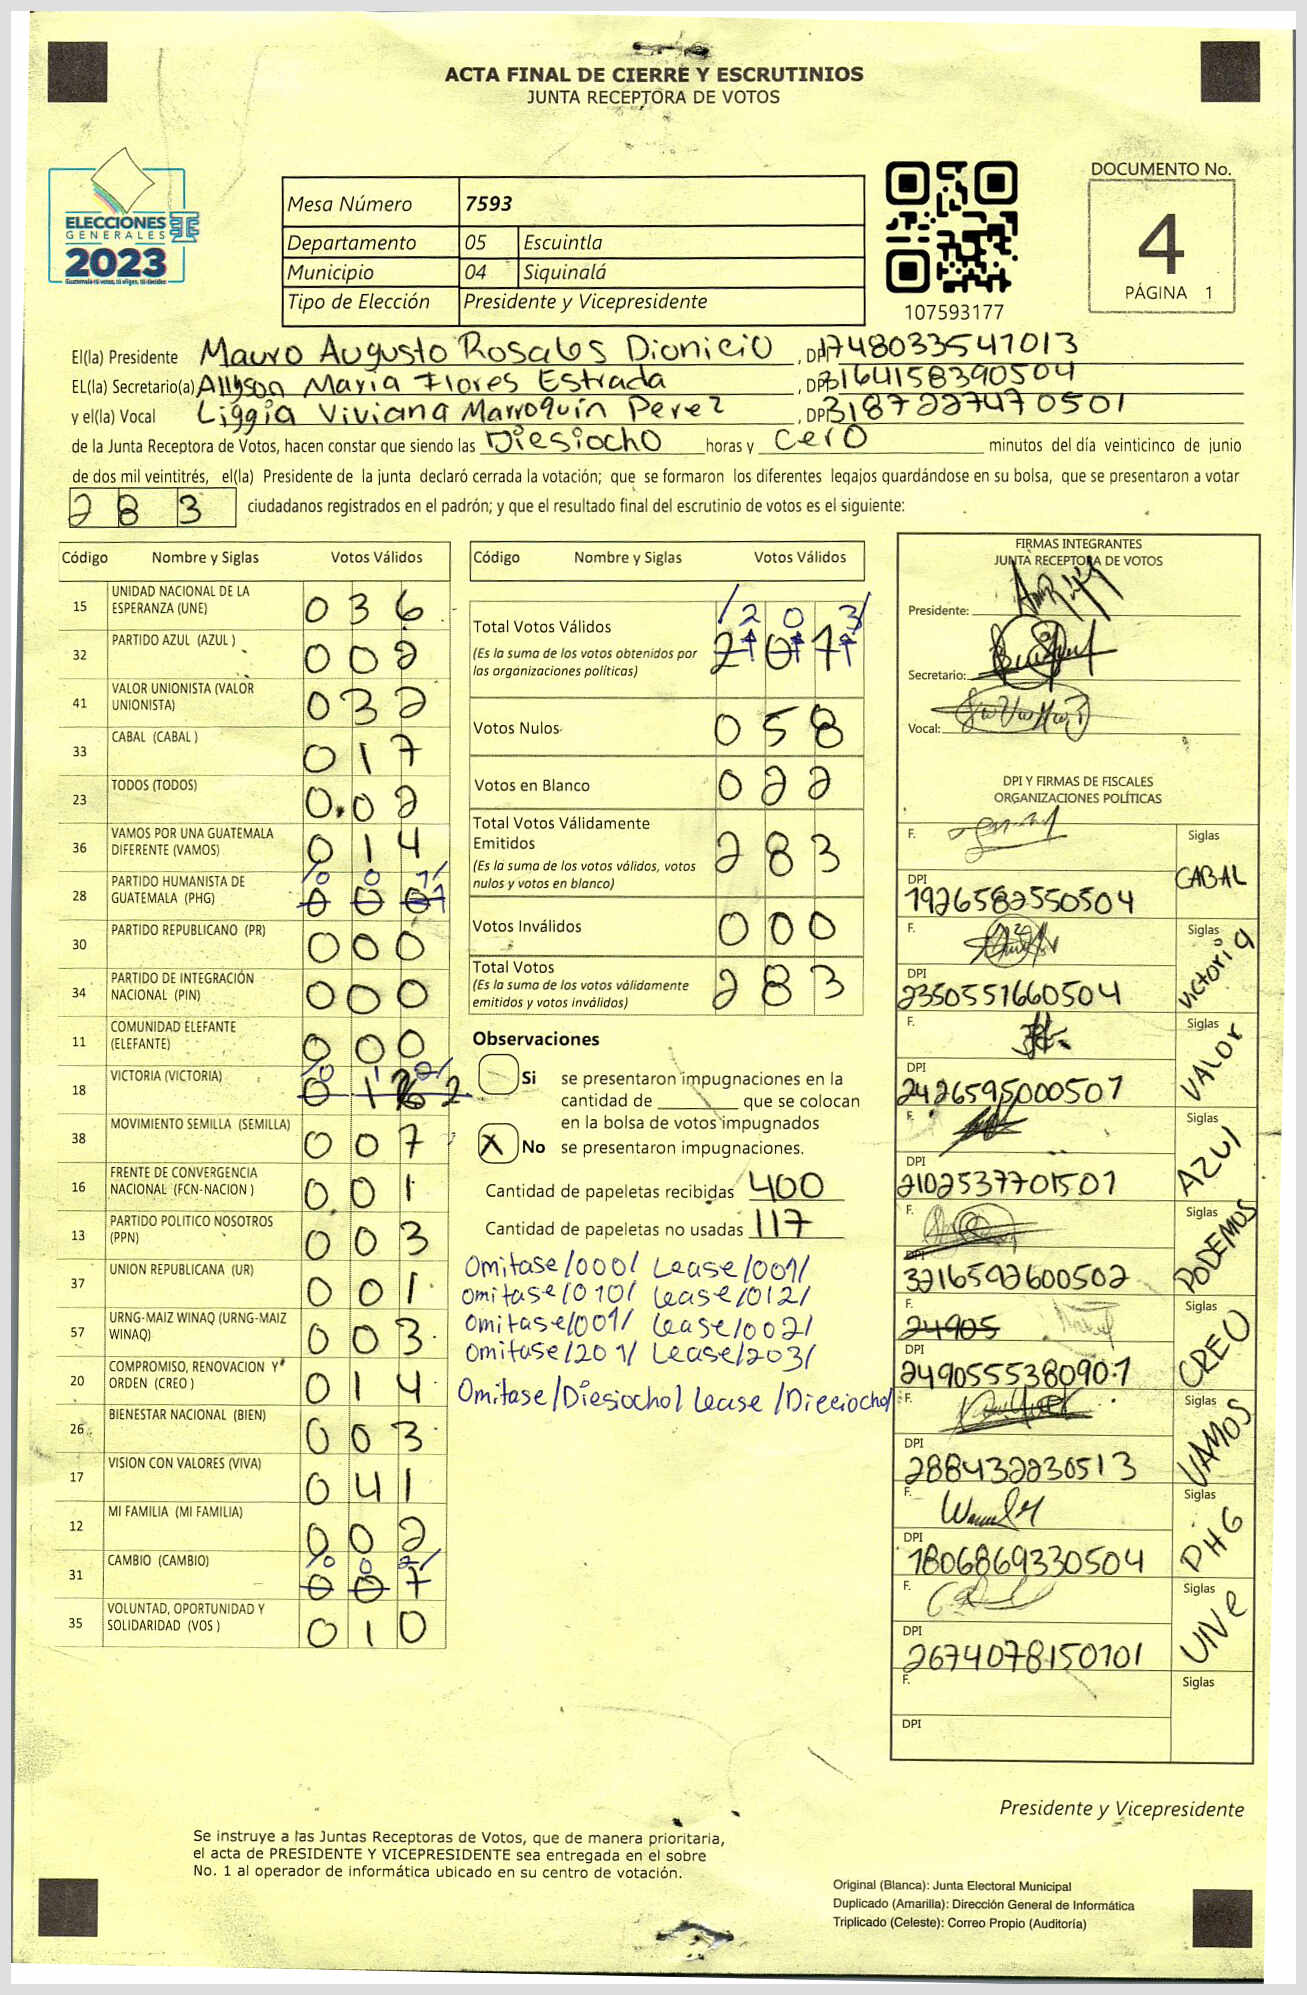 ACTA FINAL DE CIERRE Y ESCRUTINIOS
JUNTA RECEPTORA DE VOTOS
ELECCIONES
GENERALES
2023
Mesa Número 7593
Departamento 05 Escuintla
Municipio 04 Siquinalá
Tipo de Elección Presidente y Vicepresidente
107593177
DOCUMENTO No.
4
PÁGINA 1
El(la) Presidente Mauro Augusto Rosales Dionicio, DPI 1748033541013
EL(la) Secretario(a) Allyson Maria Flores Estrada, DPI 3164158390504
y el(la) Vocal Liggia Viviana Marroquin Perez, DPI 3187227470501
de la Junta Receptora de Votos, hacen constar que siendo las Diesiocho horas y cero minutos del día veinticinco de junio
de dos mil veintitrés, el(la) Presidente de la junta declaró cerrada la votación; que se formaron los diferentes legajos guardándose en su bolsa, que se presentaron a votar
283 ciudadanos registrados en el padrón; y que el resultado final del escrutinio de votos es el siguiente:
Código Nombre y Siglas Votos Válidos
15 UNIDAD NACIONAL DE LA ESPERANZA (UNE) 036
32 PARTIDO AZUL (AZUL ) 002
41 VALOR UNIONISTA (VALOR UNIONISTA) 032
33 CABAL (CABAL ) 017
23 TODOS (TODOS) 0.02
36 VAMOS POR UNA GUATEMALA DIFERENTE (VAMOS) 014
28 PARTIDO HUMANISTA DE GUATEMALA (PHG) /001/
30 PARTIDO REPUBLICANO (PR) 000
34 PARTIDO DE INTEGRACIÓN NACIONAL (PIN) 000
11 COMUNIDAD ELEFANTE (ELEFANTE) 000
18 VICTORIA (VICTORIA) /012/
38 MOVIMIENTO SEMILLA (SEMILLA) 007
16 FRENTE DE CONVERGENCIA NACIONAL (FCN-NACION ) 001
13 PARTIDO POLITICO NOSOTROS (PPN) 003
37 UNION REPUBLICANA (UR) 001
57 URNG-MAIZ WINAQ (URNG-MAIZ WINAQ) 003
20 COMPROMISO, RENOVACION Y ORDEN (CREO ) 014
26 BIENESTAR NACIONAL (BIEN) 003
17 VISION CON VALORES (VIVA) 041
12 MI FAMILIA (MI FAMILIA) 002
31 CAMBIO (CAMBIO) /002/
35 VOLUNTAD, OPORTUNIDAD Y SOLIDARIDAD (VOS ) 010
Código Nombre y Siglas Votos Válidos
Total Votos Válidos /203/
(Es la suma de los votos obtenidos por las organizaciones políticas)
Votos Nulos 058
Votos en Blanco 022
Total Votos Válidamente Emitidos 283
(Es la suma de los votos válidos, votos nulos y votos en blanco)
Votos Inválidos 000
Total Votos 283
(Es la suma de los votos válidamente emitidos y votos inválidos)
Observaciones
Si se presentaron impugnaciones en la
cantidad de ________ que se colocan
en la bolsa de votos impugnados
X No se presentaron impugnaciones.
Cantidad de papeletas recibidas 400
Cantidad de papeletas no usadas 117
Omitase/000/ Lease/001/
Omitase/010/ Lease/012/
Omitase/001/ Lease/002/
Omitase/201/ Lease/203/
Omitase/Diesiocho/ Lease /Dieciocho/
FIRMAS INTEGRANTES
JUNTA RECEPTORA DE VOTOS
Presidente:
Secretario:
Vocal:
DPI Y FIRMAS DE FISCALES
ORGANIZACIONES POLÍTICAS
F. Siglas CABAL
DPI 1926582550504
F. Siglas Victoria
DPI 2350551660504
F. Siglas VALOR
DPI 2426595000501
F. Siglas AZUL
DPI 2102537701501
F. Siglas PODEMOS
DPI 3216592600502
F. 24905 Siglas CREO
DPI 2490555380901
F. Siglas VAMOS
DPI 288432230513
F. Siglas PHG
DPI 1806869330504
F. Siglas UNe
DPI 2674078150101
F. Siglas
DPI
Presidente y Vicepresidente
Se instruye a las Juntas Receptoras de Votos, que de manera prioritaria,
el acta de PRESIDENTE Y VICEPRESIDENTE sea entregada en el sobre
No. 1 al operador de informática ubicado en su centro de votación.
Original (Blanca): Junta Electoral Municipal
Duplicado (Amarilla): Dirección General de Informática
Triplicado (Celeste): Correo Propio (Auditoría)